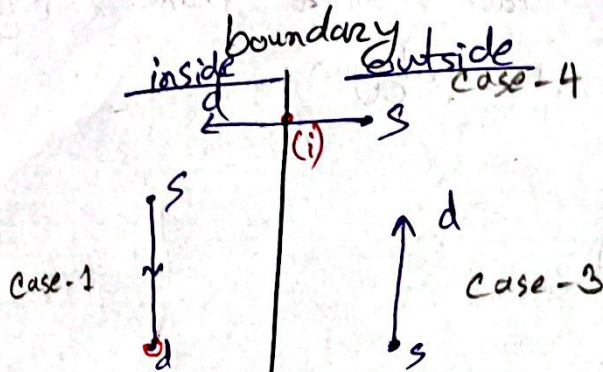 boundary
inside outside
case-4
d S
(i)
S d
case-1 case-3
d s